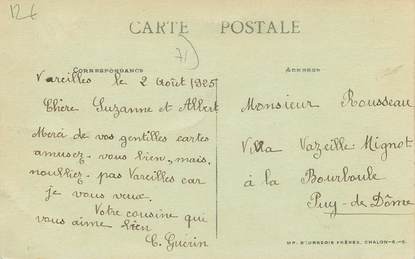 12€
CARTE POSTALE
71
CORRESPONDANCE
ADRESSE
Vareilles le 2 Août 1925
Chère Suzanne et Albert
Merci de vos gentilles cartes
amusez-vous bien, mais
noubliez-pas Vareilles car
je vous veux.
Votre cousine qui
vous aime bien
C. Guérin
Monsieur Rousseau
Villa Vazeille-Mignot
à la Bourboule
Puy-de-Dôme
IMP. BOURGEOIS FRÈRES, CHALON-S-S.